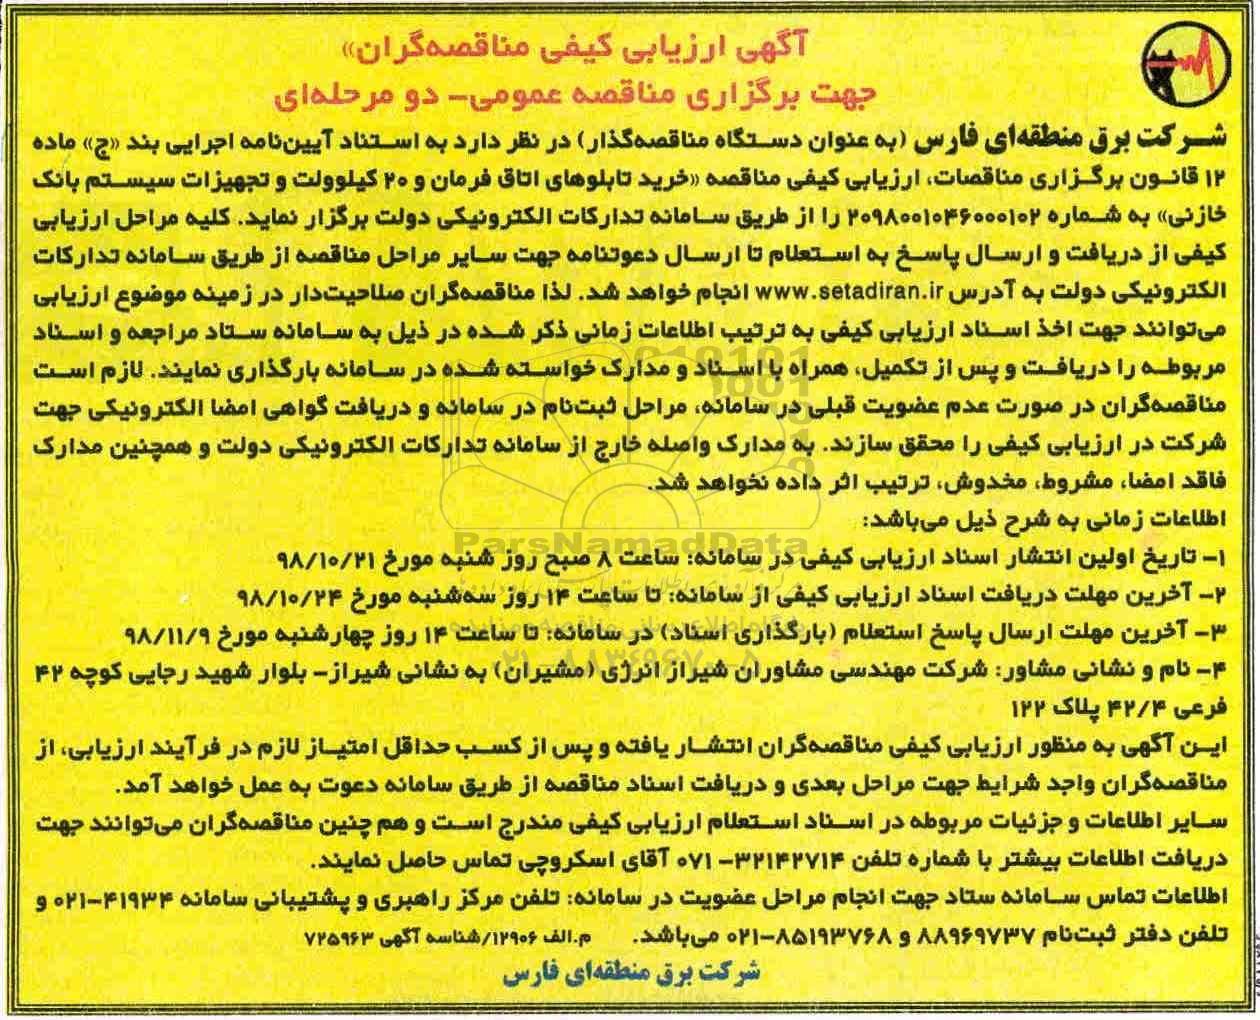 آگهی ارزیابی کیفی مناقصه‌گران»
جهت برگزاری مناقصه عمومی- دو مرحله‌ای
شرکت برق منطقه‌ای فارس (به عنوان دستگاه مناقصه‌گذار) در نظر دارد به استناد آیین‌نامه اجرایی بند «ج» ماده
۱۲ قانون برگزاری مناقصات، ارزیابی کیفی مناقصه «خرید تابلوهای اتاق فرمان و ۲۰ کیلوولت و تجهیزات سیستم بانک
خازنی» به شماره ۲۰۹۸۰۰۱۰۴۶۰۰۰۱۰۲ را از طریق سامانه تدارکات الکترونیکی دولت برگزار نماید. کلیه مراحل ارزیابی
کیفی از دریافت و ارسال پاسخ به استعلام تا ارسال دعوتنامه جهت سایر مراحل مناقصه از طریق سامانه تدارکات
الکترونیکی دولت به آدرس www.setadiran.ir انجام خواهد شد. لذا مناقصه‌گران صلاحیت‌دار در زمینه موضوع ارزیابی
می‌توانند جهت اخذ اسناد ارزیابی کیفی به ترتیب اطلاعات زمانی ذکر شده در ذیل به سامانه ستاد مراجعه و اسناد
مربوطه را دریافت و پس از تکمیل، همراه با اسناد و مدارک خواسته شده در سامانه بارگذاری نمایند. لازم است
مناقصه‌گران در صورت عدم عضویت قبلی در سامانه، مراحل ثبت‌نام در سامانه و دریافت گواهی امضا الکترونیکی جهت
شرکت در ارزیابی کیفی را محقق سازند. به مدارک واصله خارج از سامانه تدارکات الکترونیکی دولت و همچنین مدارک
فاقد امضا، مشروط، مخدوش، ترتیب اثر داده نخواهد شد.
اطلاعات زمانی به شرح ذیل می‌باشد:
۱- تاریخ اولین انتشار اسناد ارزیابی کیفی در سامانه: ساعت ۸ صبح روز شنبه مورخ ۹۸/۱۰/۲۱
۲- آخرین مهلت دریافت اسناد ارزیابی کیفی از سامانه: تا ساعت ۱۴ روز سه‌شنبه مورخ ۹۸/۱۰/۲۴
۳- آخرین مهلت ارسال پاسخ استعلام (بارگذاری اسناد) در سامانه: تا ساعت ۱۴ روز چهارشنبه مورخ ۹۸/۱۱/۹
۴- نام و نشانی مشاور: شرکت مهندسی مشاوران شیراز انرژی (مشیران) به نشانی شیراز- بلوار شهید رجایی کوچه ۴۲
فرعی ۴۲/۴ پلاک ۱۲۲
این آگهی به منظور ارزیابی کیفی مناقصه‌گران انتشار یافته و پس از کسب حداقل امتیاز لازم در فرآیند ارزیابی، از
مناقصه‌گران واجد شرایط جهت مراحل بعدی و دریافت اسناد مناقصه از طریق سامانه دعوت به عمل خواهد آمد.
سایر اطلاعات و جزئیات مربوطه در اسناد استعلام ارزیابی کیفی مندرج است و هم چنین مناقصه‌گران می‌توانند جهت
دریافت اطلاعات بیشتر با شماره تلفن ۳۲۱۴۲۷۱۴-۰۷۱ آقای اسکروچی تماس حاصل نمایند.
اطلاعات تماس سامانه ستاد جهت انجام مراحل عضویت در سامانه: تلفن مرکز راهبری و پشتیبانی سامانه ۴۱۹۳۴-۰۲۱ و
تلفن دفتر ثبت‌نام ۸۸۹۶۹۷۳۷ و ۸۵۱۹۳۷۶۸-۰۲۱ می‌باشد. م.الف ۱۲۹۰۶/شناسه آگهی ۷۲۵۹۶۳
شرکت برق منطقه‌ای فارس
ParsNamadData
۰۲۱-۸۸۳۴۹۶۷۰-۵